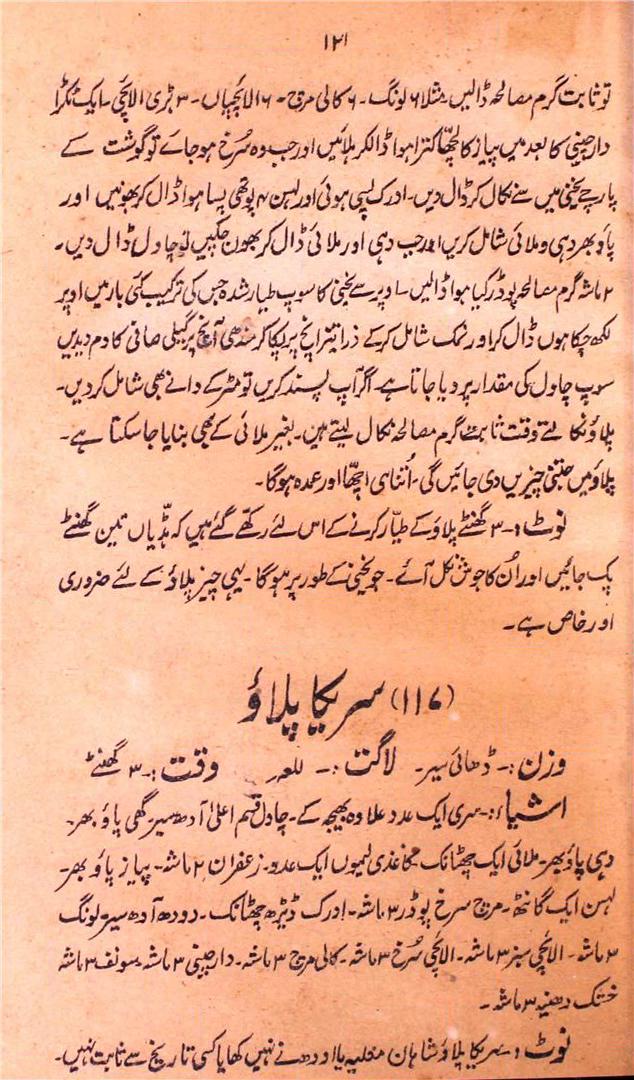 ۱۲۱
تو ثابت گرم مصالحہ ڈالیں مثلاً ۶ لونگ۔ ۶ کالی مرچ۔ ۶ الائچیاں۔ ۳ بڑی الائچی۔ ایک ٹکڑا
دارچینی کا بعد میں پیاز کا لچھا کترا ہوا ڈالکر ہلائیں اور جب وہ سُرخ ہو جائے تو گوشت کے
پارچے یخنی میں سے نکال کر ڈال دیں۔ ادرک پسی ہوئی اور لہن ۴ پوتھی پسا ہوا ڈال کر بھونیں اور
پاؤ بھر دہی و ملائی شامل کریں اور جب دہی اور ملائی ڈال کر بھون چکیں تو چاول ڈال دیں۔
۲ ماشہ گرم مصالحہ پوڈر کیا ہوا ڈالیں۔ اوپر سے یخنی کا سوپ طیار شدہ جس کی ترکیب کئی بار میں اوپر
لکھ چکا ہوں ڈال کر اور نمک شامل کر کے ذرا تیز آنچ پر پکا کر مندھی آنچ پر گیلی صافی کا دم دیدیں
سوپ چاول کی مقدار پر دیا جاتا ہے۔ اگر آپ پسند کریں تو مٹر کے دانے بھی شامل کر دیں۔
پلاؤ نکالتے وقت ثابت گرم مصالحہ نکال لیتے ہیں۔ بغیر ملائی کے بھی بنایا جا سکتا ہے۔
پلاؤ میں جتنی چیزیں دی جائیں گی۔ اُتنا ہی اچھا اور عمدہ ہوگا۔
نوٹ :۔ ۳ گھنٹے پلاؤ کے طیّار کرنے کے اس لئے رکھے گئے ہیں کہ ہڈیاں تین گھنٹے
پک جائیں اور اُن کا جوش نکل آئے۔ جو یخنی کے طور پر ہوگا۔ یہی چیز پلاؤ کے لئے ضروری
اور خاص ہے۔
(۱۱۷) سر یکا پلاؤ
وزن :۔ ڈھائی سیر۔ لاگت :۔ للعہ وقت :۔ ۳ گھنٹے
اشیاء :۔ سری ایک عدد علاوہ بھیجہ کے۔ چاول قسم اعلیٰ آدھ سیر۔ گھی پاؤ بھر۔
دہی پاؤ بھر۔ ملائی ایک چھٹانک۔ کاغذی لیموں ایک عدد۔ زعفران ۲ ماشہ۔ پیاز پاؤ بھر۔
لہن ایک گانٹھ۔ مرچ سرخ پوڈر ۳ ماشہ۔ ادرک ڈیڑھ چھٹانک۔ دودھ آدھ سیر۔ لونگ
۳ ماشہ۔ الائچی سبز ۳ ماشہ۔ الائچی سُرخ ۳ ماشہ۔ کالی مرچ ۳ ماشہ۔ دارچینی ۳ ماشہ۔ سونف ۳ ماشہ
خشک دھنیہ ۳ ماشہ۔
نوٹ :۔ سر یکا پلاؤ شاہان مغلیہ یا اودھ نے نہیں کھایا کسی تاریخ سے ثابت نہیں۔